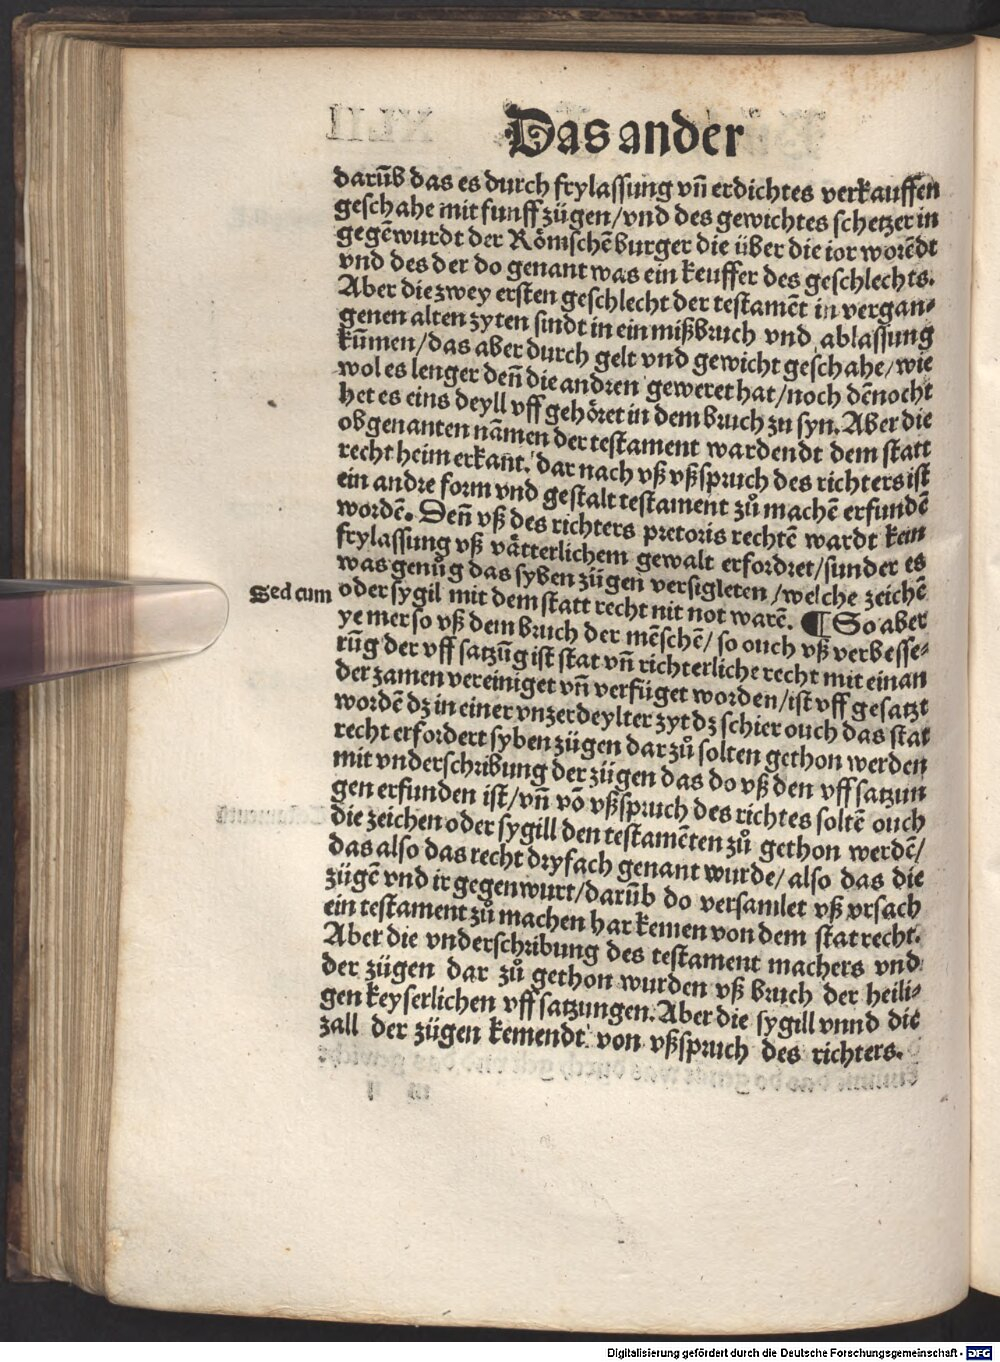 Das ander
darūb das es durch frylassung vn̄ erdichtes verkauffen
geschahe mit funff zügen/vnd des gewichtes schetzer in
gegēwurdt der Römschē burger die über die ior worēdt
vnd des der do genant was ein keuffer des geschlechts.
Aber die zwey ersten geschlecht der testamēt in vergan⸗
genen alten zyten sindt in ein mißbruch vnd ablassung
kūmen/das aber durch gelt vnd gewicht geschahe/wie
wol es lenger den̄ die andren geweret hat/noch dēnocht
het es eins deyll vff gehöret in dem bruch zu syn. Aber die
obgenanten nāmen der testament wardendt dem statt
recht heim erkant. dar nach vß vßspruch des richters ist
ein andre form vnd gestalt testament zů machē erfundē
wordē. Den̄ vß des richters pretoris rechtē wardt kein
frylassung vß vätterlichem gewalt erfordret/sunder es
was genůg das syben zügen versigleten/welche zeichē
Sed cum
oder sygil mit dem statt recht nit not warē. ¶ So aber
ye mer so vß dem bruch der mēschē/so ouch vß verbesse⸗
rūg der vff satzūg ist stat vn̄ richterliche recht mit einan
der zamen vereiniget vn̄ verfüget worden/ist vff gesatzt
wordē dz in einer vnzerdeylter zyt dz schier ouch das stat
recht erfordert syben zügen dar zů solten gethon werden
mit vnderschribung der zügen das do vß den vff satzun
gen erfunden ist/vn̄ vō vßspruch des richtes soltē ouch
die zeichen oder sygill den testamēten zů gethon werdē/
das also das recht dryfach genant wurde/also das die
zügē vnd ir gegenwurt/darūb do versamlet vß vrsach
ein testament zů machen har kemen von dem stat recht.
Aber die vnderschribung des testament machers vnd
der zügen dar zů gethon wurden vß bruch der heili⸗
gen keyserlichen vff satzungen. Aber die sygill vnnd die
zall der zügen kemendt von vßspruch des richters.
Digitalisierung gefördert durch die Deutsche Forschungsgemeinschaft - DFG